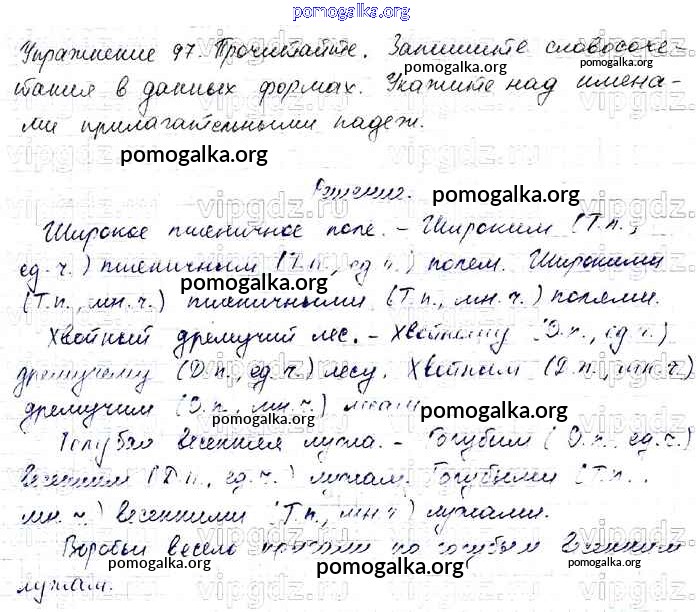 pomogalka.org
Упражнение 97. Прочитайте. Запишите словосоче-
pomogalka.org
тания в данных формах. Укажите над имена-
pomogalka.org
ми прилагательными падеж.
pomogalka.org
Решение.
pomogalka.org
Широкое пшеничное поле. - Широким (Т.п.,
ед.ч.) пшеничным (Т.п., ед.ч.) полем. Широкими
pomogalka.org
(Т.п., мн.ч.) пшеничными (Т.п., мн.ч.) полями.
Хвойный дремучий лес. - Хвойному (Д.п., ед.ч.)
pomogalka.org
дремучему (Д.п., ед.ч.) лесу. Хвойным (Д.п., мн.ч.)
дремучим (Д.п., мн.ч.) лесам.
pomogalka.org pomogalka.org
Голубая весенняя лужа. - Голубым (Д.п., ед.ч.)
весенним (Д.п., ед.ч.) лужам. Голубыми (Т.п.,
pomogalka.org
мн.ч.) весенними (Т.п., мн.ч.) лужами.
pomogalka.org
Воробьи весело прыгали по голубым весенним
pomogalka.org pomogalka.org
лужам.